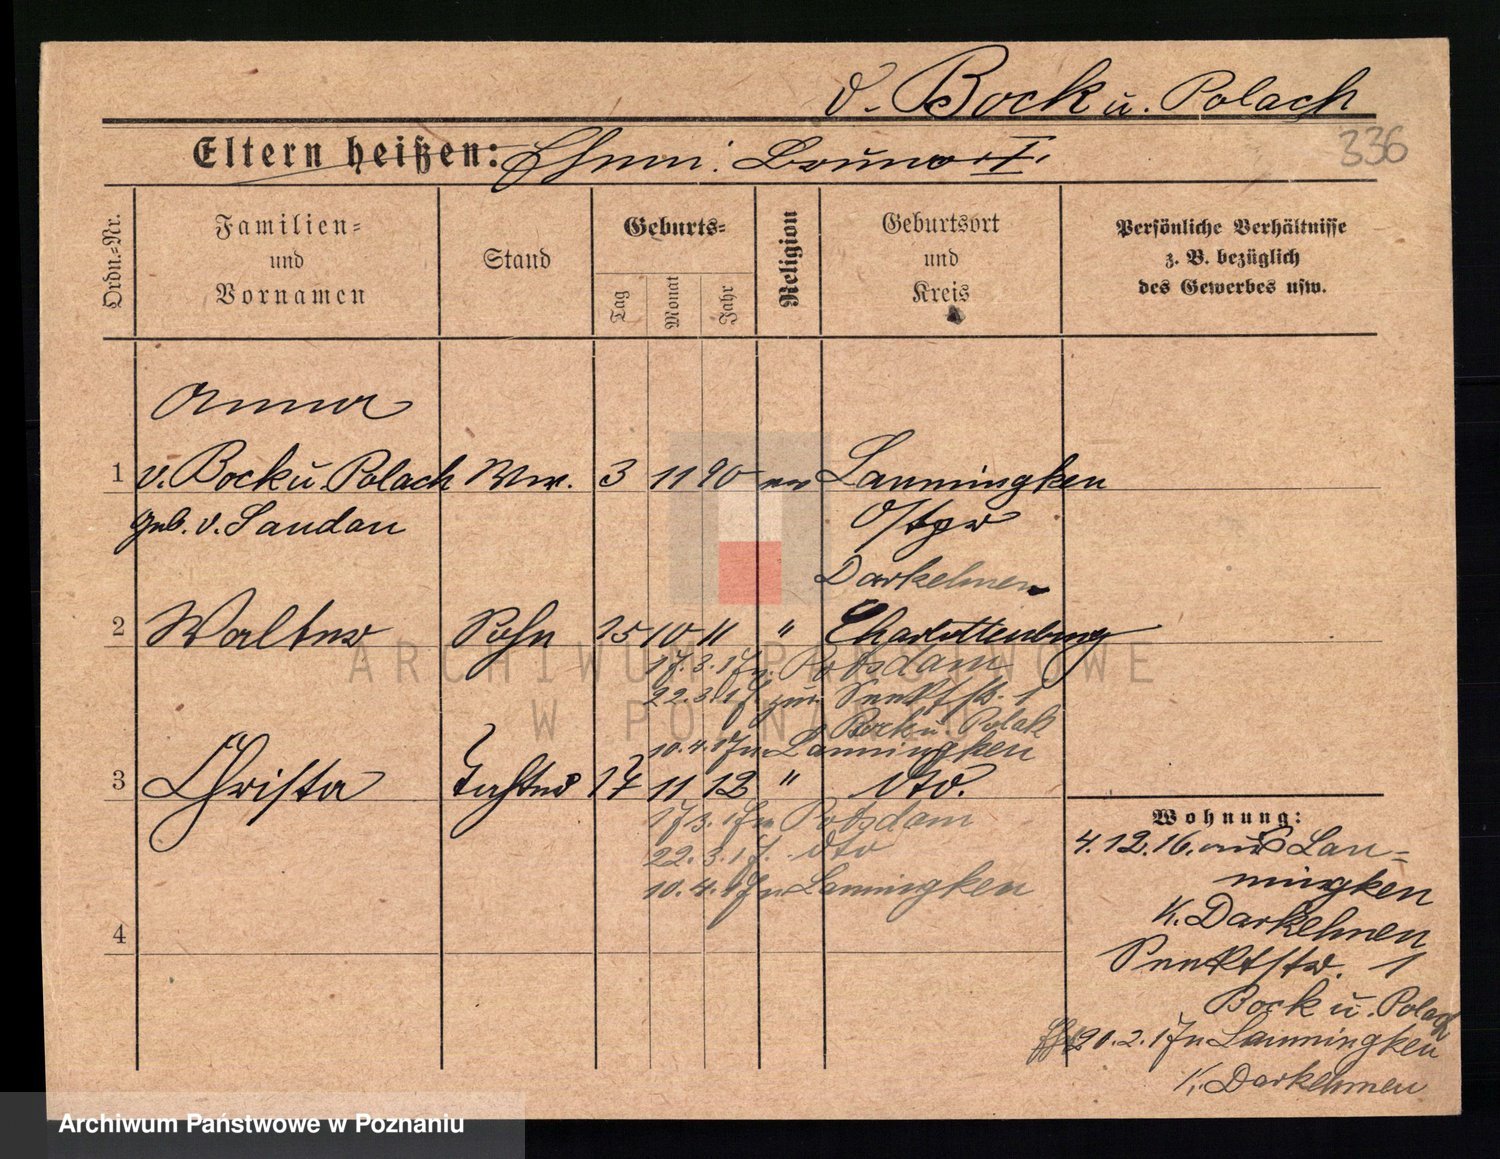 v. Bock u. Polach
336
Eltern heißen: Ehem: Bruno I.
Ordn.-Nr.
Familien-
und
Vornamen
Stand
Geburts-
Tag
Monat
Jahr
Religion
Geburtsort
und
Kreis
Persönliche Verhältnisse
z. B. bezüglich
des Gewerbes usw.
Anna
1 v. Bock u. Polach Ww. 3 11 90 ev Lanningken
geb. v. Saudau Ostpr
Darkehmen
2 Walter Sohn 15 10 11 " Charlottenburg
17.3.17 n. Potsdam
22.3.17 1
Bock u. Polak
10.4.17 n. Lanningken
3 Christa Tochter 17 11 12 " dto.
17.3.17 n Potsdam
22.3.17. dto
10.4.17 n Lanningken
4
Wohnung:
4.12.16. aus Lan=
ningken
K. Darkehmen
1
Bock u. Polach
20.2.17 n Lanningken
K. Darkehmen
ARCHIWUM PAŃSTWOWE
W POZNANIU
Archiwum Państwowe w Poznaniu